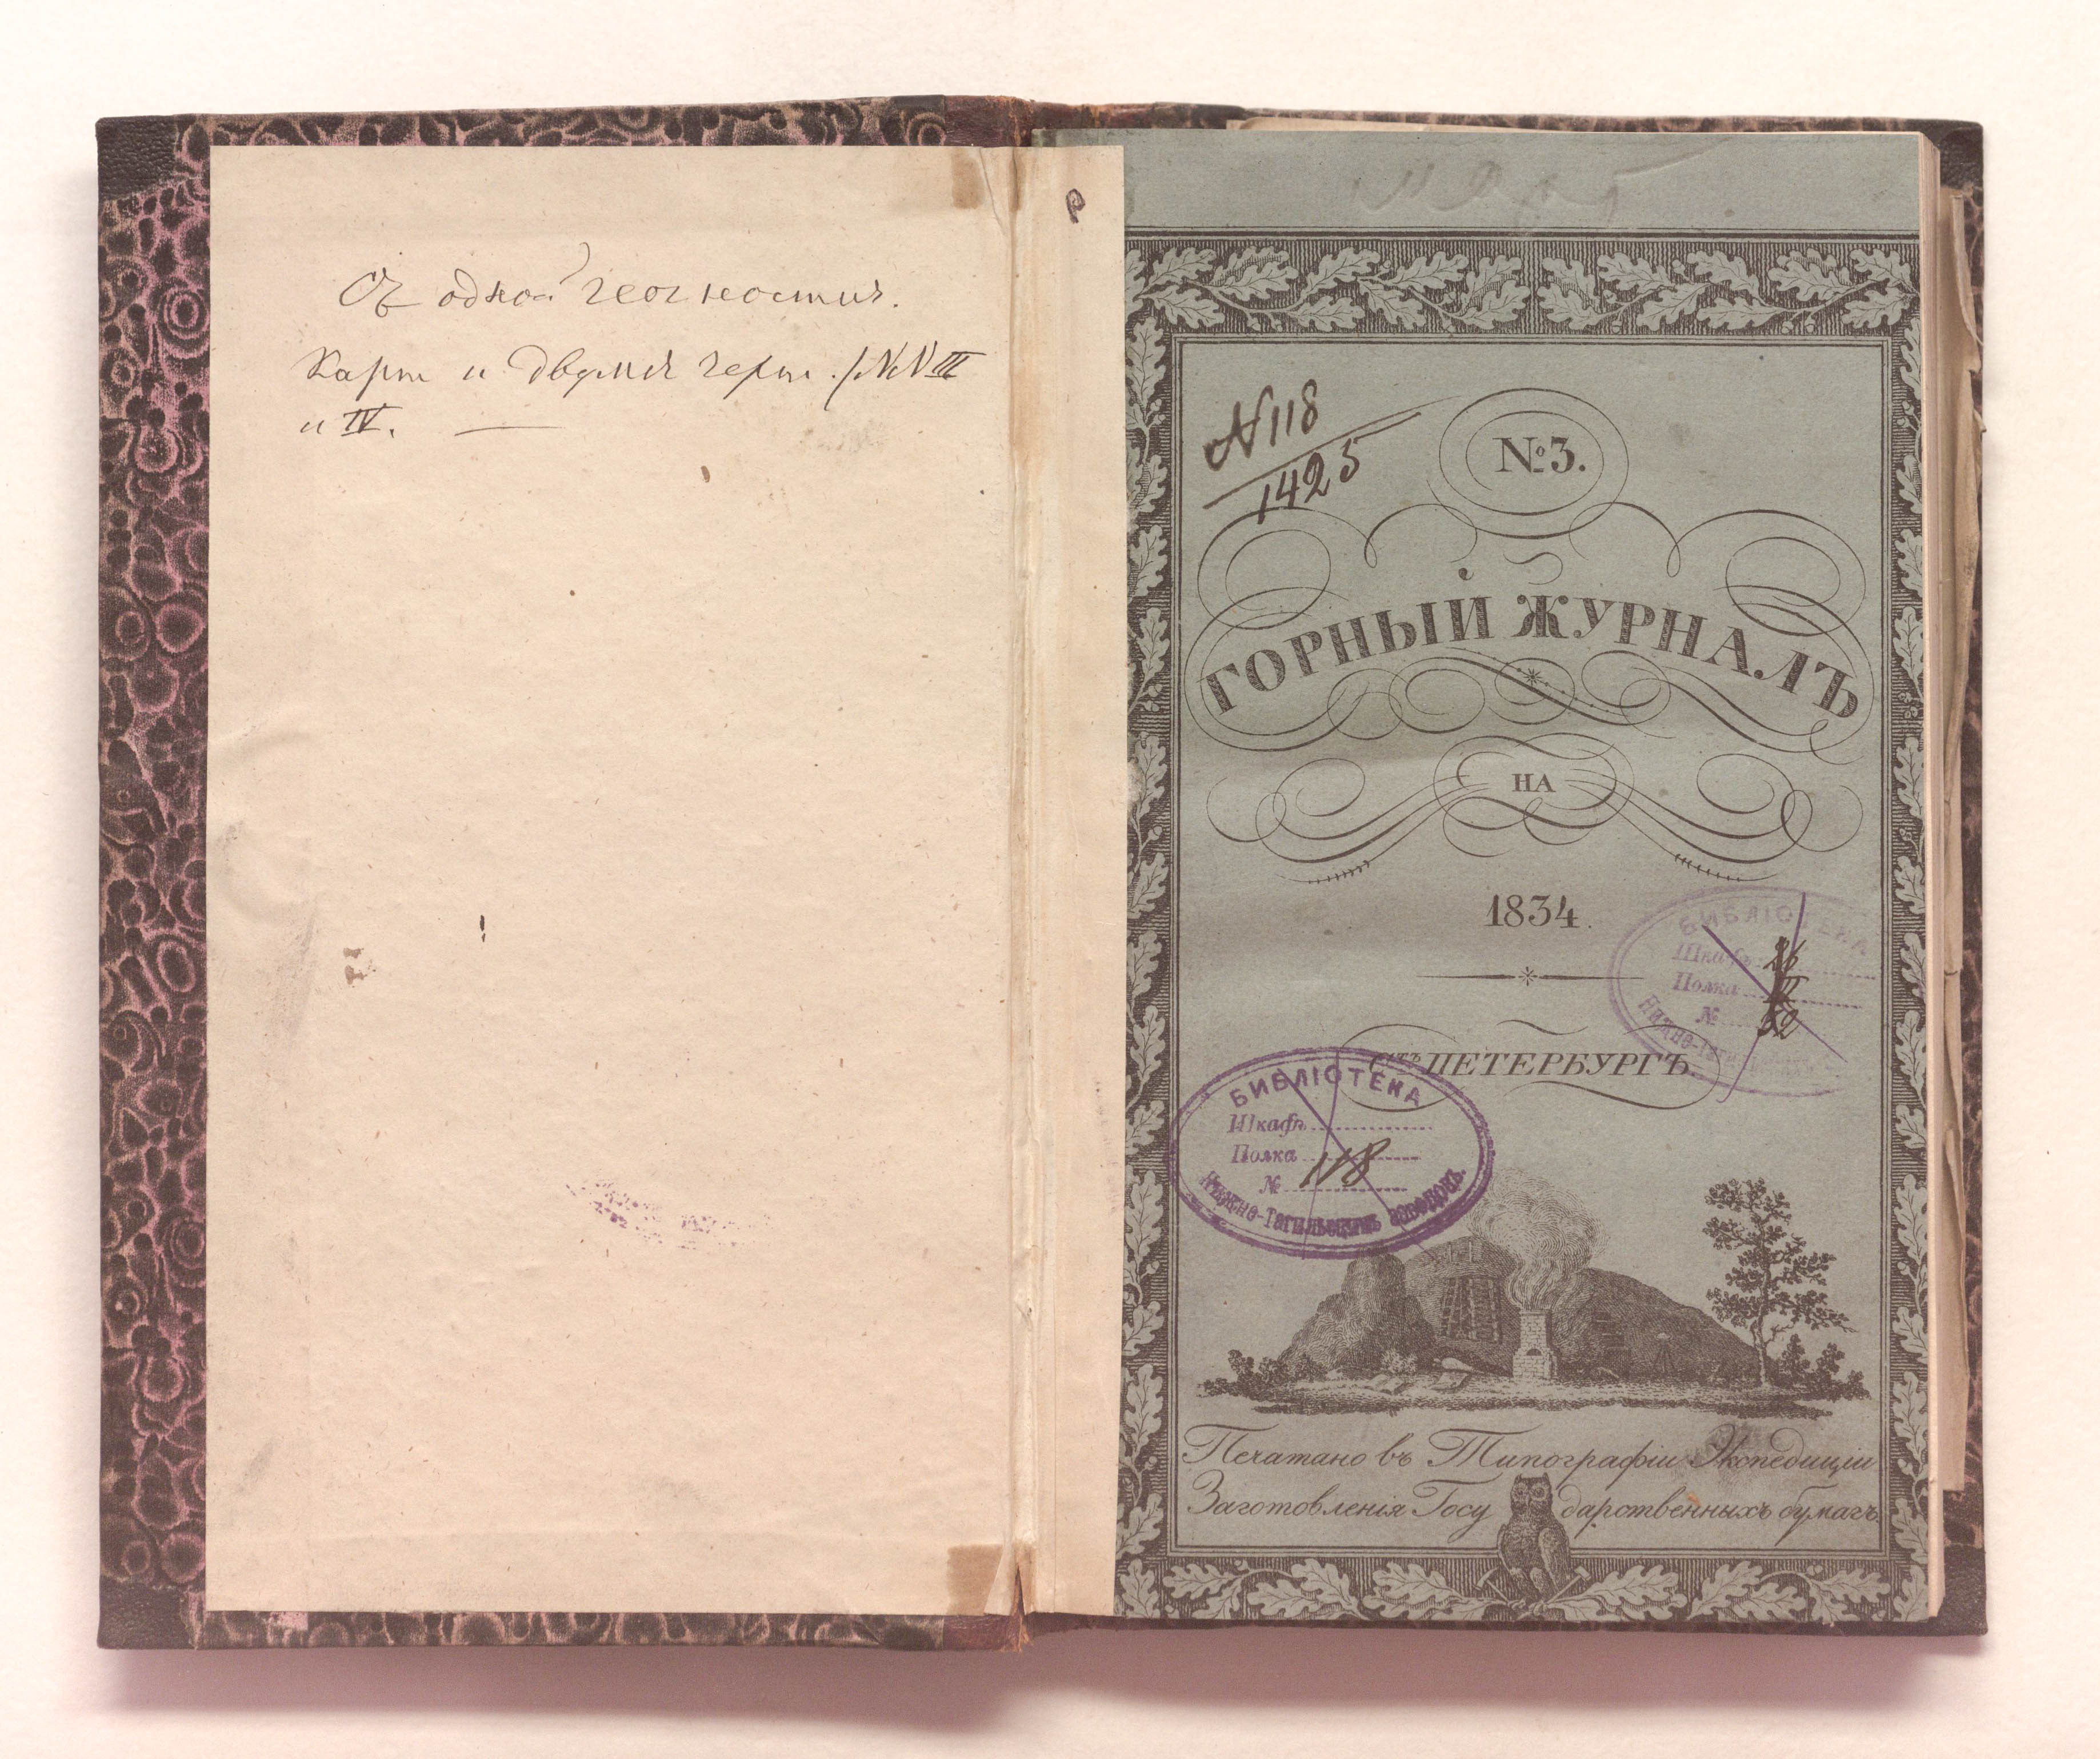 Съ одной геогностич.
карт и двумя черт. /№№ III
и IV.
№ 118
1425
№ 3.
ГОРНЫЙ ЖУРНАЛЪ
НА
1834.
БИБЛІОТЕКА
Шкафъ 26
Полка II
№ 52
Нижне-Тагильскихъ
С.ПЕТЕРБУРГЪ.
БИБЛІОТЕКА
Шкафъ
Полка
№ 118
Нижне-Тагильскихъ заводовъ.
Печатано въ Типографіи Экспедиціи
Заготовленія Государственныхъ бумагъ.